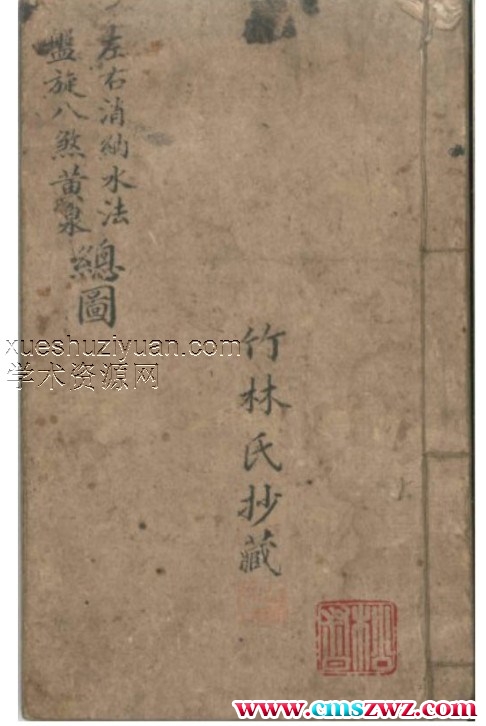 左右消納水法
盤旋八煞黄泉
總圖
竹林氏抄藏
xueshuziyuan.com
学术资源网
www.cmszwz.com